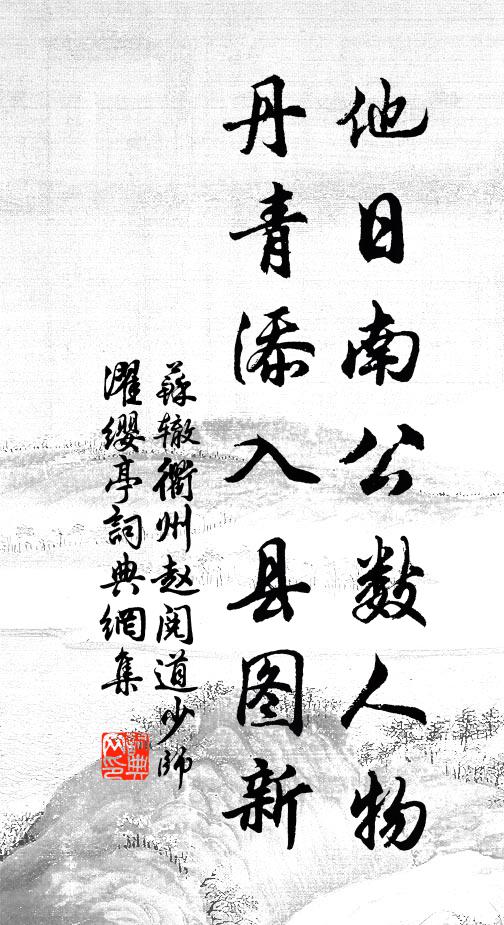 他日南公数人物
丹青添入县图新
苏辙衢州赵阅道少师
濯缨亭詞典網集